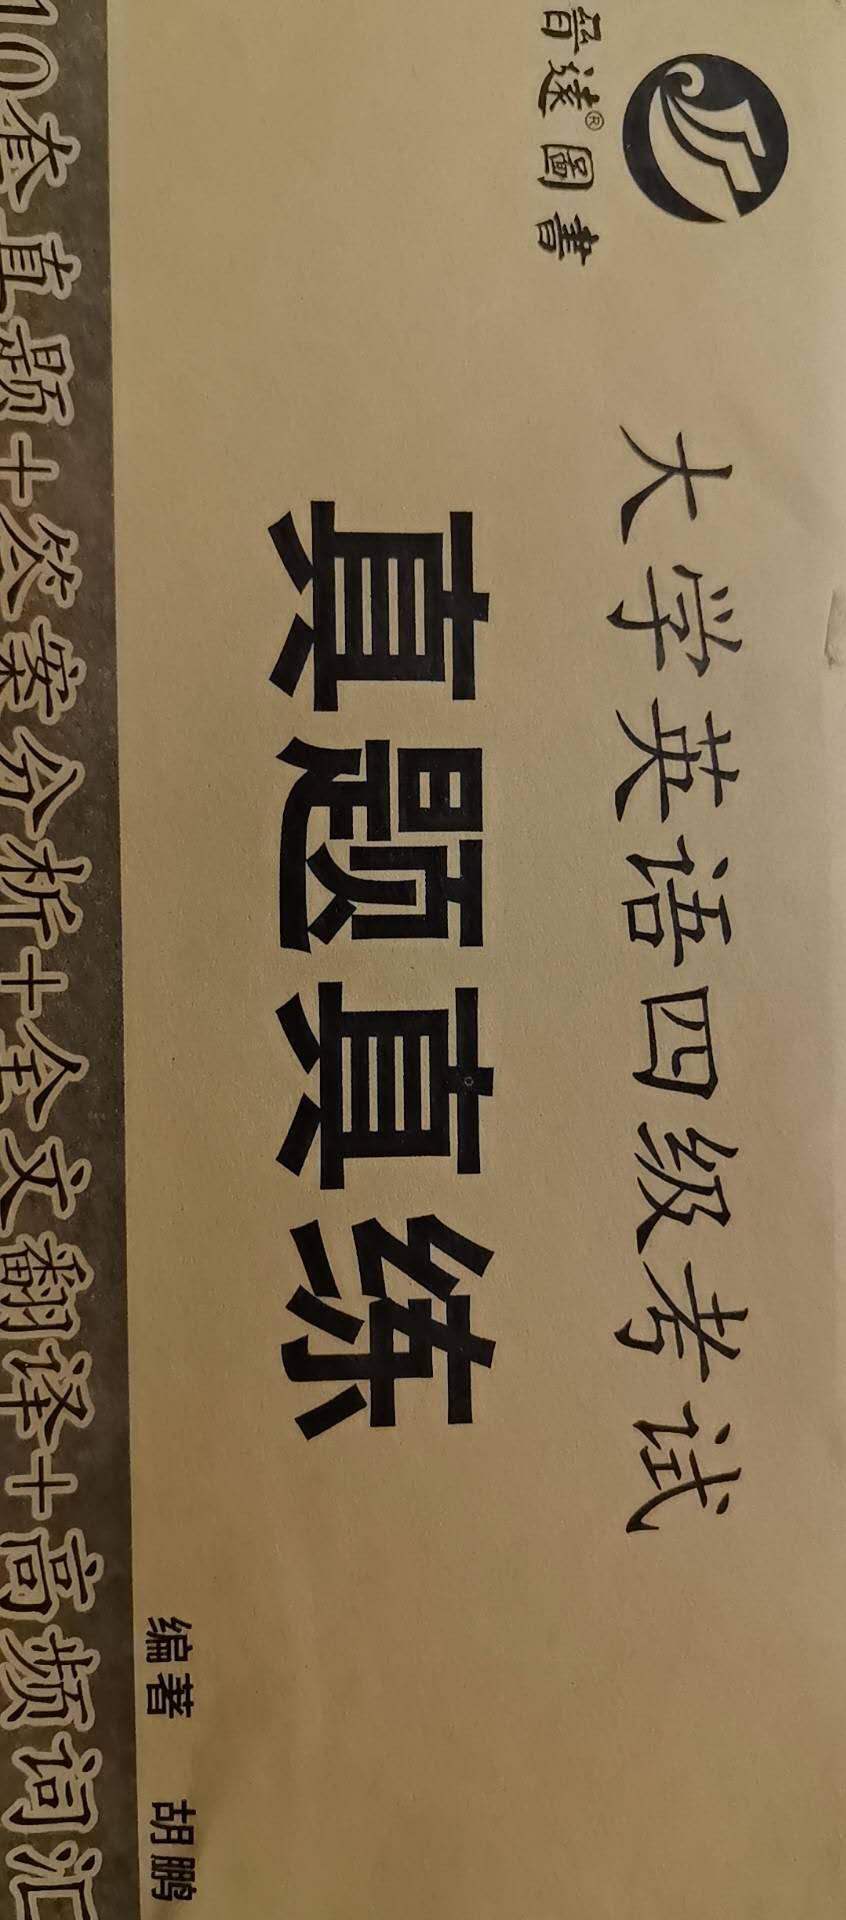 晋逵®圖書
大学英语四级考试
真题真练
编著 胡鹏
10套真题+答案分析+全文翻译+高频词汇